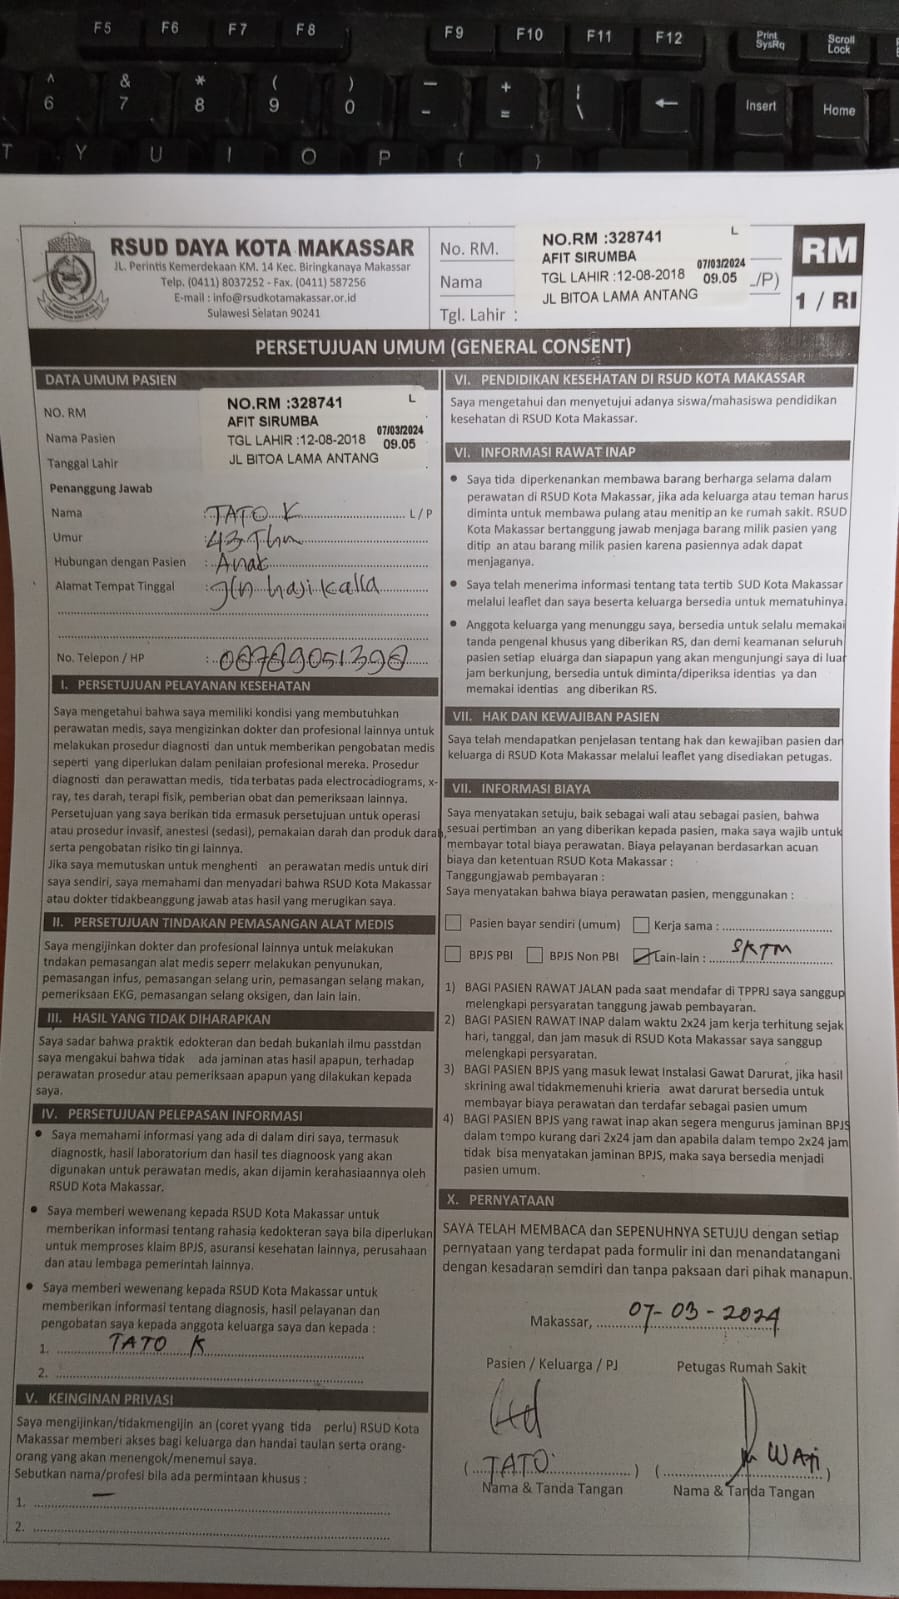 F5 F6 F7 F8 F9 F10 F11 F12 Print SysRq Scroll Lock
^ 6 & 7 * 8 ( 9 ) 0 _ - + = ¦ \ ← Insert Home
T Y U I O P { }
RSUD DAYA KOTA MAKASSAR
JL. Perintis Kemerdekaan KM. 14 Kec. Biringkanaya Makassar
Telp. (0411) 8037252 - Fax. (0411) 587256
E-mail : info@rsudkotamakassar.or.id
Sulawesi Selatan 90241
No. RM.
Nama
Tgl. Lahir :
NO.RM :328741 L
AFIT SIRUMBA 07/03/2024
TGL LAHIR :12-08-2018 09.05
JL BITOA LAMA ANTANG
/P)
RM
1 / RI
PERSETUJUAN UMUM (GENERAL CONSENT)
DATA UMUM PASIEN
NO. RM
Nama Pasien
Tanggal Lahir
NO.RM :328741 L
AFIT SIRUMBA 07/03/2024
TGL LAHIR :12-08-2018 09.05
JL BITOA LAMA ANTANG
Penanggung Jawab
Nama : TATO K L / P
Umur : 43 Thn
Hubungan dengan Pasien : Anak
Alamat Tempat Tinggal : Jln haji kalla
No. Telepon / HP : 08789051398
I. PERSETUJUAN PELAYANAN KESEHATAN
Saya mengetahui bahwa saya memiliki kondisi yang membutuhkan
perawatan medis, saya mengizinkan dokter dan profesional lainnya untuk
melakukan prosedur diagnosti dan untuk memberikan pengobatan medis
seperti yang diperlukan dalam penilaian profesional mereka. Prosedur
diagnosti dan perawattan medis, tida terbatas pada electrocadiograms, x-
ray, tes darah, terapi fisik, pemberian obat dan pemeriksaan lainnya.
Persetujuan yang saya berikan tida ermasuk persetujuan untuk operasi
atau prosedur invasif, anestesi (sedasi), pemakaian darah dan produk darah,
serta pengobatan risiko tin gi lainnya.
Jika saya memutuskan untuk menghenti an perawatan medis untuk diri
saya sendiri, saya memahami dan menyadari bahwa RSUD Kota Makassar
atau dokter tidakbeanggung jawab atas hasil yang merugikan saya.
II. PERSETUJUAN TINDAKAN PEMASANGAN ALAT MEDIS
Saya mengijinkan dokter dan profesional lainnya untuk melakukan
tndakan pemasangan alat medis seperr melakukan penyunukan,
pemasangan infus, pemasangan selang urin, pemasangan selang makan,
pemeriksaan EKG, pemasangan selang oksigen, dan lain lain.
III. HASIL YANG TIDAK DIHARAPKAN
Saya sadar bahwa praktik edokteran dan bedah bukanlah ilmu passtdan
saya mengakui bahwa tidak ada jaminan atas hasil apapun, terhadap
perawatan prosedur atau pemeriksaan apapun yang dilakukan kepada
saya.
IV. PERSETUJUAN PELEPASAN INFORMASI
• Saya memahami informasi yang ada di dalam diri saya, termasuk
diagnostk, hasil laboratorium dan hasil tes diagnoosk yang akan
digunakan untuk perawatan medis, akan dijamin kerahasiaannya oleh
RSUD Kota Makassar.
• Saya memberi wewenang kepada RSUD Kota Makassar untuk
memberikan informasi tentang rahasia kedokteran saya bila diperlukan
untuk memproses klaim BPJS, asuransi kesehatan lainnya, perusahaan
dan atau lembaga pemerintah lainnya.
• Saya memberi wewenang kepada RSUD Kota Makassar untuk
memberikan informasi tentang diagnosis, hasil pelayanan dan
pengobatan saya kepada anggota keluarga saya dan kepada :
1. TATO K
2.
V. KEINGINAN PRIVASI
Saya mengijinkan/tidakmengijin an (coret yyang tida perlu) RSUD Kota
Makassar memberi akses bagi keluarga dan handai taulan serta orang-
orang yang akan menengok/menemui saya.
Sebutkan nama/profesi bila ada permintaan khusus :
1. —
2.
VI. PENDIDIKAN KESEHATAN DI RSUD KOTA MAKASSAR
Saya mengetahui dan menyetujui adanya siswa/mahasiswa pendidikan
kesehatan di RSUD Kota Makassar.
VI. INFORMASI RAWAT INAP
• Saya tida diperkenankan membawa barang berharga selama dalam
perawatan di RSUD Kota Makassar, jika ada keluarga atau teman harus
diminta untuk membawa pulang atau menitip an ke rumah sakit. RSUD
Kota Makassar bertanggung jawab menjaga barang milik pasien yang
ditip an atau barang milik pasien karena pasiennya adak dapat
menjaganya.
• Saya telah menerima informasi tentang tata tertib SUD Kota Makassar
melalui leaflet dan saya beserta keluarga bersedia untuk mematuhinya.
• Anggota keluarga yang menunggu saya, bersedia untuk selalu memakai
tanda pengenal khusus yang diberikan RS, dan demi keamanan seluruh
pasien setiap eluarga dan siapapun yang akan mengunjungi saya di luar
jam berkunjung, bersedia untuk diminta/diperiksa identias ya dan
memakai identias ang diberikan RS.
VII. HAK DAN KEWAJIBAN PASIEN
Saya telah mendapatkan penjelasan tentang hak dan kewajiban pasien dan
keluarga di RSUD Kota Makassar melalui leaflet yang disediakan petugas.
VII. INFORMASI BIAYA
Saya menyatakan setuju, baik sebagai wali atau sebagai pasien, bahwa
sesuai pertimban an yang diberikan kepada pasien, maka saya wajib untuk
membayar total biaya perawatan. Biaya pelayanan berdasarkan acuan
biaya dan ketentuan RSUD Kota Makassar :
Tanggungjawab pembayaran :
Saya menyatakan bahwa biaya perawatan pasien, menggunakan :
Pasien bayar sendiri (umum) Kerja sama :
BPJS PBI BPJS Non PBI Lain-lain : SKTM
1) BAGI PASIEN RAWAT JALAN pada saat mendafar di TPPRJ saya sanggup
melengkapi persyaratan tanggung jawab pembayaran.
2) BAGI PASIEN RAWAT INAP dalam waktu 2x24 jam kerja terhitung sejak
hari, tanggal, dan jam masuk di RSUD Kota Makassar saya sanggup
melengkapi persyaratan.
3) BAGI PASIEN BPJS yang masuk lewat Instalasi Gawat Darurat, jika hasil
skrining awal tidakmemenuhi krieria awat darurat bersedia untuk
membayar biaya perawatan dan terdafar sebagai pasien umum
4) BAGI PASIEN BPJS yang rawat inap akan segera mengurus jaminan BPJS
dalam tempo kurang dari 2x24 jam dan apabila dalam tempo 2x24 jam
tidak bisa menyatakan jaminan BPJS, maka saya bersedia menjadi
pasien umum.
X. PERNYATAAN
SAYA TELAH MEMBACA dan SEPENUHNYA SETUJU dengan setiap
pernyataan yang terdapat pada formulir ini dan menandatangani
dengan kesadaran semdiri dan tanpa paksaan dari pihak manapun.
Makassar, 07-03-2024
Pasien / Keluarga / PJ Petugas Rumah Sakit
( TATO ) ( WATI )
Nama & Tanda Tangan Nama & Tanda Tangan